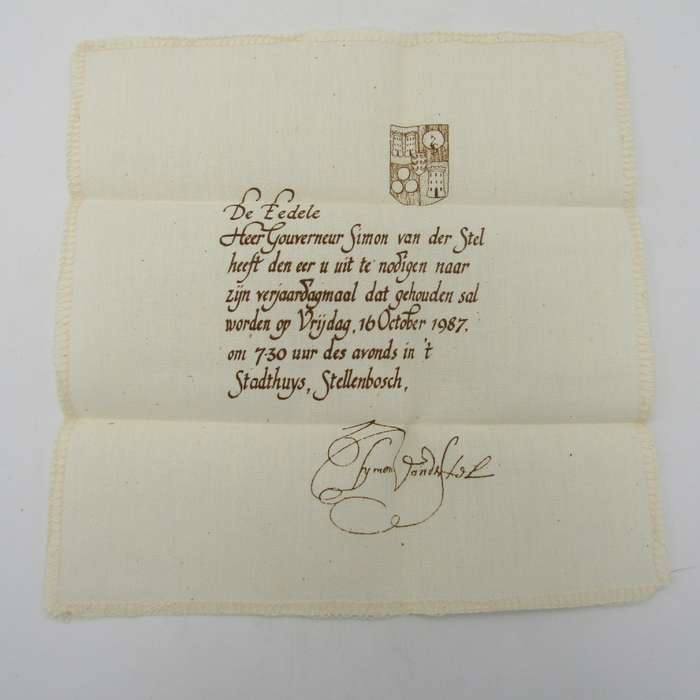 De Eedele
Heer Gouverneur Simon van der Stel
heeft den eer u uit te nodigen naar
zijn verjaardagmaal dat gehouden sal
worden op Vrijdag, 16 October 1987.
om 7·30 uur des avonds in 't
Stadthuys, Stellenbosch,
Symon vanderstel